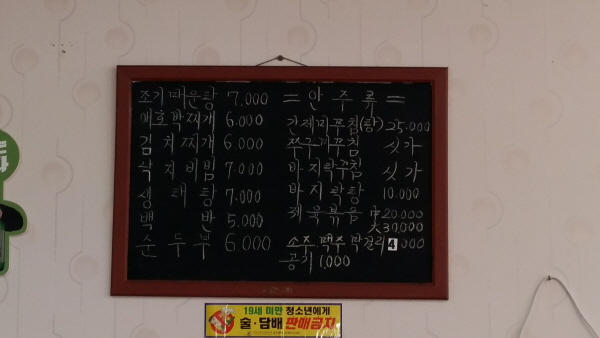 조기매운탕 7.000
애호박찌개 6.000
김치찌개 6.000
낙지비빔 7.000
생태탕 7.000
백반 5.000
순두부 6.000
= 안주류 =
간제미무침(탕) 25.000
쭈구미무침 싯가
바지락무침 싯가
바지락탕 10.000
제육볶음 中 20.000
大 30.000
소주 맥주 막걸리 4.000
공기 1.000
19세 미만 청소년에게
술·담배 판매금지